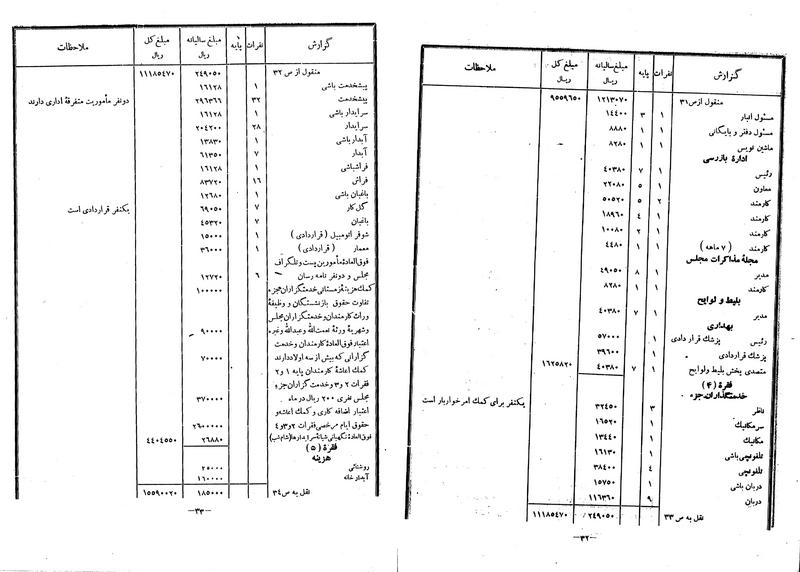 گزارش نفرات پایه مبلغ سالیانه ریال مبلغ کل ریال ملاحظات
منقول از ص ۳۱ ۱۲۱۳۰۷۰ ۹۵۵۹۶۵۰
مسئول انبار ۱ ۳ ۱۴۴۰۰
مسئول دفتر و بایگانی ۱ ۱ ۸۸۸۰
ماشین نویس ۱ ۱ ۸۲۸۰
ادارهٔ بازرسی
رئیس ۱ ۷ ۴۰۳۸۰
معاون ۱ ۵ ۲۲۰۸۰
کارمند ۲ ۵ ۵۰۵۲۰
کارمند ۱ ۴ ۱۸۹۶۰
کارمند ۱ ۲ ۱۰۰۸۰
کارمند (۷ ماهه) ۱ ۱ ۴۴۸۰
مجلهٔ مذاکرات مجلس
مدیر ۱ ۸ ۴۹۰۵۰
کارمند ۱ ۱ ۸۲۸۰
بلیط و لوایح
مدیر ۱ ۷ ۴۰۳۸۰
بهداری
رئیس پزشك قراردادی ۱ ۵۷۰۰۰
پزشك قراردادی ۱ ۳۹۶۰۰
متصدی پخش بلیط ولوایح ۱ ۷ ۴۰۳۸۰ ۱۶۲۵۸۲۰
فقرهٔ (۴)
خدمتگذاران جزء
ناظر ۳ ۳۲۴۵۰ یکنفر برای کمك امرخواربار است
سرمکانیك ۱ ۱۶۵۲۰
مکانیك ۱ ۱۳۴۴۰
تلفونچی باشی ۱ ۱۶۱۳۰
تلفونچی ۴ ۳۸۴۰۰
دربان باشی ۱ ۱۵۷۵۰
دربان ۹ ۱۱۶۳۶۰
نقل به ص ۳۳ ۲۴۹۰۵۰ ۱۱۱۸۵۴۷۰
—۳۲—
گزارش نفرات پایه مبلغ سالیانه ریال مبلغ کل ریال ملاحظات
منقول از ص ۳۲ ۲۴۹۰۵۰ ۱۱۱۸۵۴۷۰
پیشخدمت باشی ۱ ۱۶۱۲۸
پیشخدمت ۳۲ ۲۹۶۳۶۶ دونفر مأموریت متفرقهٔ اداری دارند
سرایدار باشی ۱ ۱۶۱۲۸
سرایدار ۲۸ ۲۰۴۲۰۰
آبدار باشی ۱ ۱۳۸۳۰
آبدار ۷ ۶۱۳۵۰
فراشباشی ۱ ۱۶۱۲۸
فراش ۱۶ ۸۳۷۲۰
باغبان باشی ۱ ۱۲۶۸۰
گل کار ۷ ۶۹۰۵۰ یکنفر قراردادی است
باغبان ۷ ۴۵۳۲۰
شوفر اتومبیل (قراردادی) ۱ ۱۵۰۰۰
معمار (قراردادی) ۱ ۳۶۰۰۰
فوق العادهٔ مأمورین پست و تلگراف
مجلس و دونفر نامه رسان ۶ ۱۲۷۲۰
کمك هزینهٔ زمستانی خدمتگزاران جزء ۱۰۰۰۰۰
تفاوت حقوق بازنشستگان و وظیفهٔ
وراث کارمندان و خدمتگزاران مجلس
و شهریهٔ ورثهٔ نعمت الله و عبدالله وغیره ۹۰۰۰۰
اعتبار فوق العادهٔ کارمندان و خدمت
گزارانی که بیش از سه اولاد دارند ۷۰۰۰۰
کمك اعاشهٔ کارمندان پایه ۱ و ۲
فقرات ۲ و ۳ و خدمت گزاران جزء
مجلس نفری ۲۰۰ ریال در ماه ۳۷۰۰۰۰
اعتبار اضافه کاری و کمك اعاشه و
حقوق ایام مرخصی فقرات ۲ و ۳ و ۴ ۲۶۰۰۰۰۰
فوق العادهٔ نگهبانی شبانهٔ سرایدارها (شام شب) ۲۶۸۸۰ ۴۴۰۴۵۵۰
فقرهٔ (۵)
هزینه
روشنائی ۲۵۰۰۰
آبدارخانه ۱۶۰۰۰۰
نقل به ص ۳۴ ۱۸۵۰۰۰ ۱۵۵۹۰۰۲۰
—۳۳—